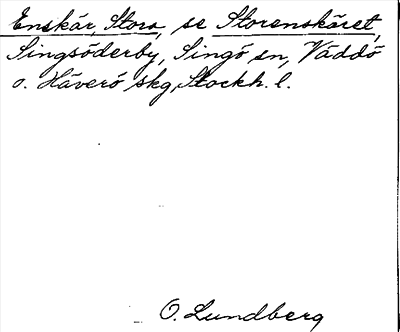 Enskär, Stora, se Storenskäret,
Singsöderby, Singö sn, Väddö
o. Häverö skg, Stockh. l.
O. Lundberg